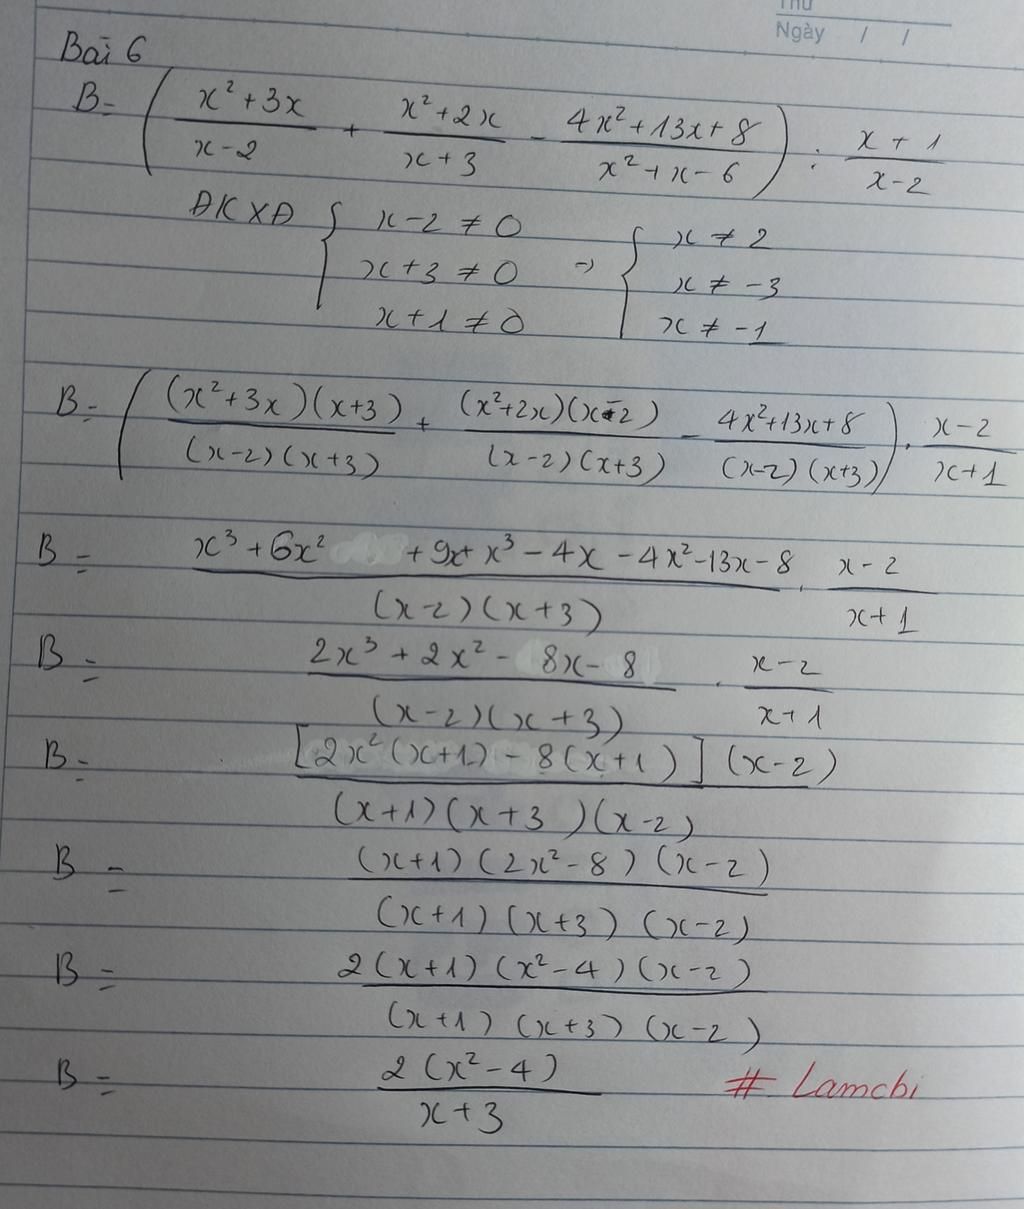 Thứ
Ngày / /
Bài 6
B = ( (x² + 3x)/(x - 2) + (x² + 2x)/(x + 3) - (4x² + 13x + 8)/(x² + x - 6) ) : (x + 1)/(x - 2)
ĐKXĐ { x - 2 ≠ 0 ; x + 3 ≠ 0 ; x + 1 ≠ 0 => { x ≠ 2 ; x ≠ -3 ; x ≠ -1
B = ( (x² + 3x)(x + 3)/(x - 2)(x + 3) + (x² + 2x)(x - 2)/(x - 2)(x + 3) - (4x² + 13x + 8)/(x - 2)(x + 3) ) . (x - 2)/(x + 1)
B = (x³ + 6x² + 9x + x³ - 4x - 4x² - 13x - 8)/(x - 2)(x + 3) . (x - 2)/(x + 1)
B = (2x³ + 2x² - 8x - 8)/(x - 2)(x + 3) . (x - 2)/(x + 1)
B = [2x²(x + 1) - 8(x + 1)](x - 2)/(x + 1)(x + 3)(x - 2)
B = (x + 1)(2x² - 8)(x - 2)/(x + 1)(x + 3)(x - 2)
B = 2(x + 1)(x² - 4)(x - 2)/(x + 1)(x + 3)(x - 2)
B = 2(x² - 4)/(x + 3)
# Lamchi